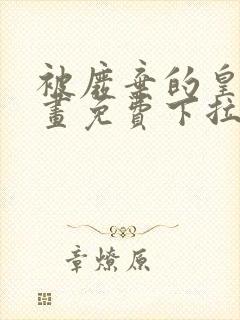 被废弃的皇
画免费下拉
章燎原